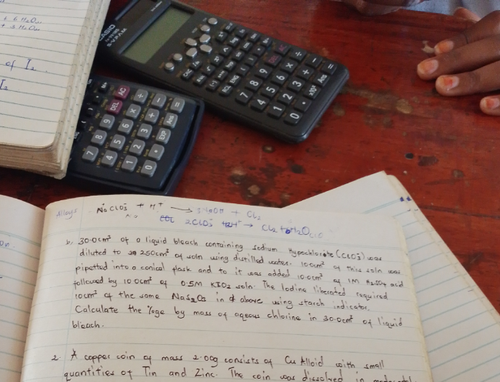 of I₂
I₂
CASIO
Always NaClO⁻ + H⁺ → + Cl₂
2ClO⁻ + H⁺ → Cl₂ +
b. 30.0cm³ of a liquid bleach containing sodium hypochlorite (ClO⁻) was
diluted to 250cm³ of soln using distilled water. 10cm³ of this soln was
pipetted into a conical flask and to it was added 10.0cm³ of 1M H₂SO₄ and
followed by 10.0cm³ of 0.5M KIO₃ soln. The Iodine liberated required
10cm³ of the same Na₂S₂O₃ in above using starch indicator.
Calculate the %age by mass of chlorine in 30.0cm³ of liquid
bleach.
2. A copper coin of mass 2.00g consists of Cu Alloid with small
quantities of Tin and Zinc. The coin was dissolved in